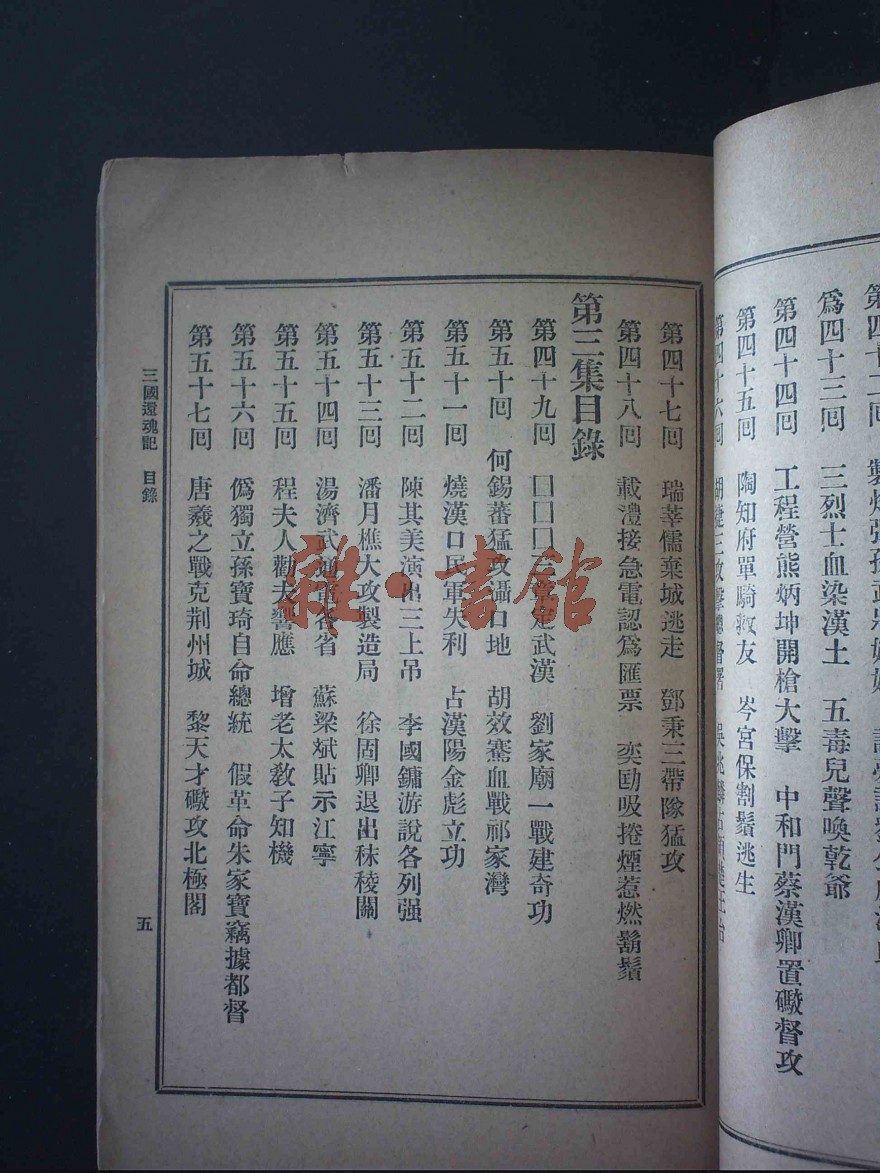 為四十三回　三烈士血染漢土　五毒兒聲喚乾爺
第四十四回　工程營熊炳坤開槍大擊　中和門蔡漢卿置礮督攻
第四十五回　陶知府單騎救友　岑宮保割鬚逃生
第四十六回
第四十七回　瑞莘儒棄城逃走　鄧秉三帶隊猛攻
第四十八回　載澧接急電認爲匯票　奕劻吸捲煙惹燃鬍鬚
第三集目錄
第四十九回　囗囗囗定武漢　劉家廟一戰建奇功
第五十回　何錫蕃猛攻灄口地　胡效騫血戰祁家灣
第五十一回　燒漢口民軍失利　占漢陽金彪立功
第五十二回　陳其美演出三上吊　李國鏞游說各列强
第五十三回　潘月樵大攻製造局　徐固卿退出秣稜關
第五十四回　湯濟武通電各省　蘇梁斌貼示江寧
第五十五回　程夫人勸夫響應　增老太敎子知機
第五十六回　僞獨立孫寶琦自命總統　假革命朱家寶竊據都督
第五十七回　唐羲之戰克荆州城　黎天才礮攻北極閣
三國還魂記　目錄
五
雜·書館